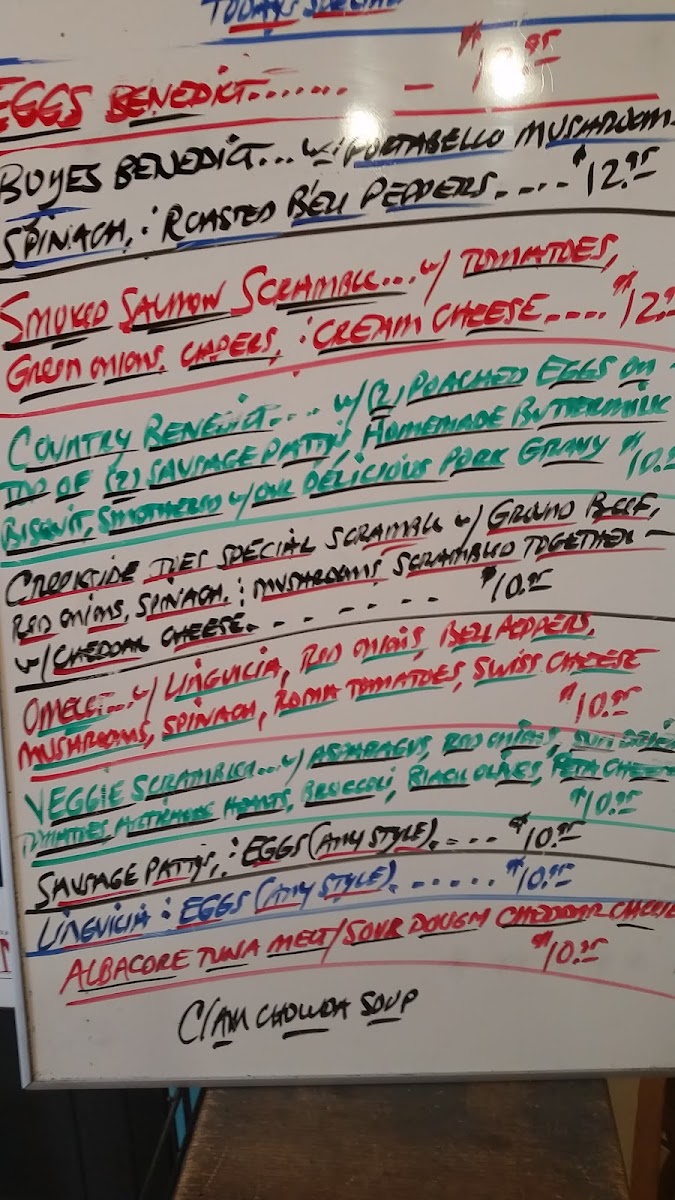 TODAYS SPECIAL
EGGS BENEDICT....... —
BUYES BENEDICT... w/ PORTABELLO MUSHROOMS
SPINACH, : ROASTED BELL PEPPERS..... $12.95
SMOKED SALMON SCRAMBLE... w/ TOMATOES,
GREEN ONIONS, CAPERS, : CREAM CHEESE.... $12.
COUNTRY BENEDICT.... w/ (2) POACHED EGGS ON
TOP OF (2) SAUSAGE PATTYS, HOMEMADE BUTTERMILK
BISCUIT, SMOTHERED w/ OUR DELICIOUS PORK GRAVY $10.
CREEKSIDE TUES SPECIAL SCRAMBLE w/ GROUND BEEF,
RED ONIONS, SPINACH, : MUSHROOMS SCRAMBLED TOGETHER —
w/ CHEDDAR CHEESE. - - - - - - $10.95
OMELET... w/ LINGUICIA, RED ONIONS, BELL PEPPERS,
MUSHROOMS, SPINACH, ROMA TOMATOES, SWISS CHEESE
$10.95
VEGGIE SCRAMBLE... w/ ASPARAGUS, RED ONIONS, SUN DRIED
TOMATOES, ARTICHOKE HEARTS, BROCCOLI, BLACK OLIVES, FETA CHEESE
$10.95
SAUSAGE PATTYS, : EGGS (ANY STYLE). - - - $10.95
LINGUICIA : EGGS (ANY STYLE). ...... $10.95
ALBACORE TUNA MELT/SOUR DOUGH CHEDDAR CHEESE
$10.95
CLAM CHOWDA SOUP